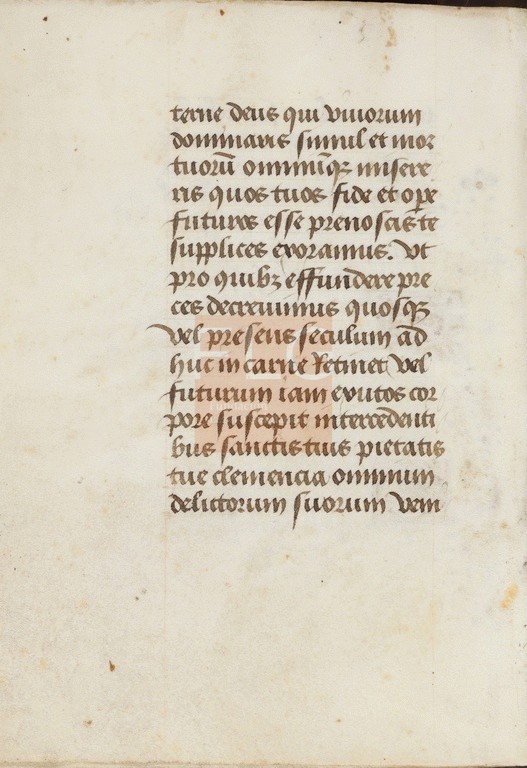 terne deus qui viuorum
dominaris simul et mor
tuorū omniūqꝫ misere
ris quos tuos fide et oꝑe
futuros esse prenoscis te
supplices exoramus. Vt
pro quibꝫ effundere pre
ces decreuimus quosqꝫ
vel presens seculum ad
huc in carne retinet vel
futurum iam exutos cor
pore suscepit intercedenti
bus sanctis tuis pietatis
tue clemencia omnium
delictorum suorum veni